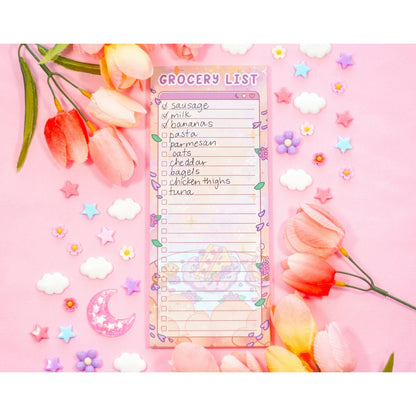 GROCERY LIST
sausage
milk
bananas
pasta
parmesan
oats
cheddar
bagels
chicken thighs
tuna